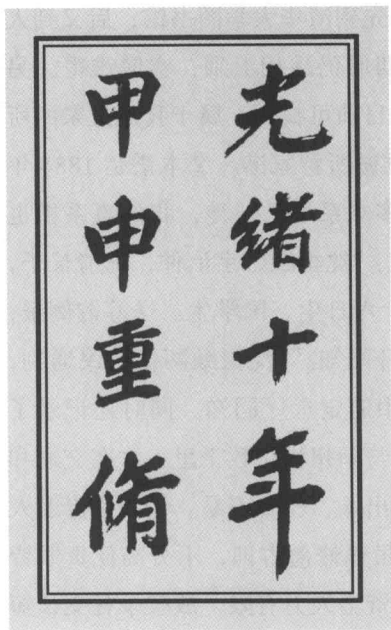 光绪十年
甲申重脩